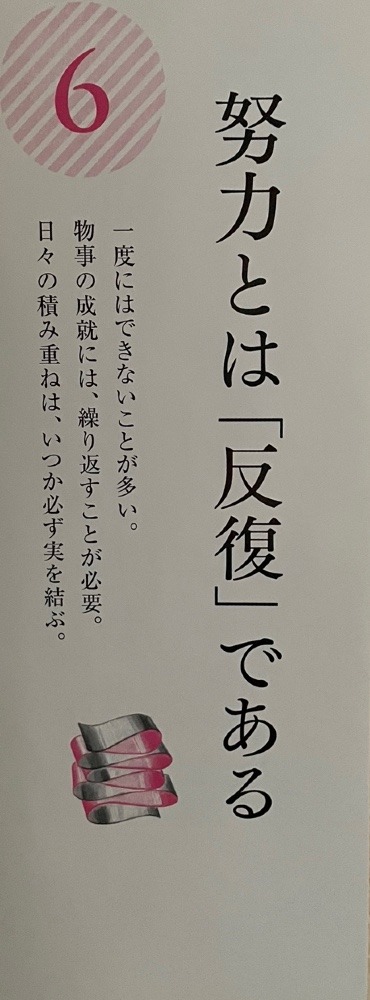 6
努力とは「反復」である
一度にはできないことが多い。
物事の成就には、繰り返すことが必要。
日々の積み重ねは、いつか必ず実を結ぶ。